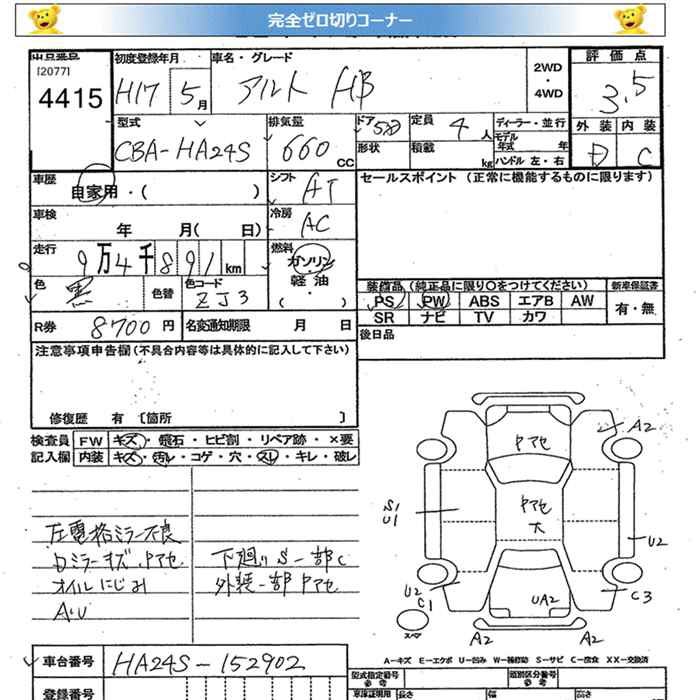 完全ゼロ切りコーナー
出品番号
[2077]
4415
初度登録年月
H17 5月
車名・グレード
アルト HB
2WD
・
4WD
評価点
3.5
外装 内装
D C
型式
CBA-HA24S
排気量
660 cc
ドア 5D
形状
定員 4人
積載 kg
ディーラー・並行
モデル年式 年
ハンドル 左・右
車歴
自家用・( )
シフト AT
車検
年 月( 日)
冷房 AC
走行
9万4千891km
燃料
ガソリン
軽油・
( )
色 黒
色替
色コード ZJ3
R券 8700円
名変通知期限 月 日
セールスポイント (正常に機能するものに限ります)
装備品(純正品に限り○をつけてください)
PS PW ABS エアB AW
SR ナビ TV カワ
新車保証書
有・無
後日品
注意事項申告欄(不具合内容等は具体的に記入して下さい)
修復歴 有 〔箇所 〕
検査員
記入欄
FW キズ・飛石・ヒビ割・リペア跡・×要
内装 キズ・汚レ・コゲ・穴・スレ・キレ・破レ
左電格ミラー不良
Dミラーキズ、Pアセ
オイルにじみ
A・U
下廻りS一部C
外装一部Pアセ
Pアセ
A2
Pアセ
大
S1
U1
U2
U2
C1
UA2
C3
スペア
A2 A2
A-キズ E-エクボ U-凹み W-補修跡 S-サビ C-腐食 XX-交換済
車台番号 HA24S-152902
登録番号
型式指定番号
参考
類別区分番号
参考
車庫証明用 長さ 幅 高さ